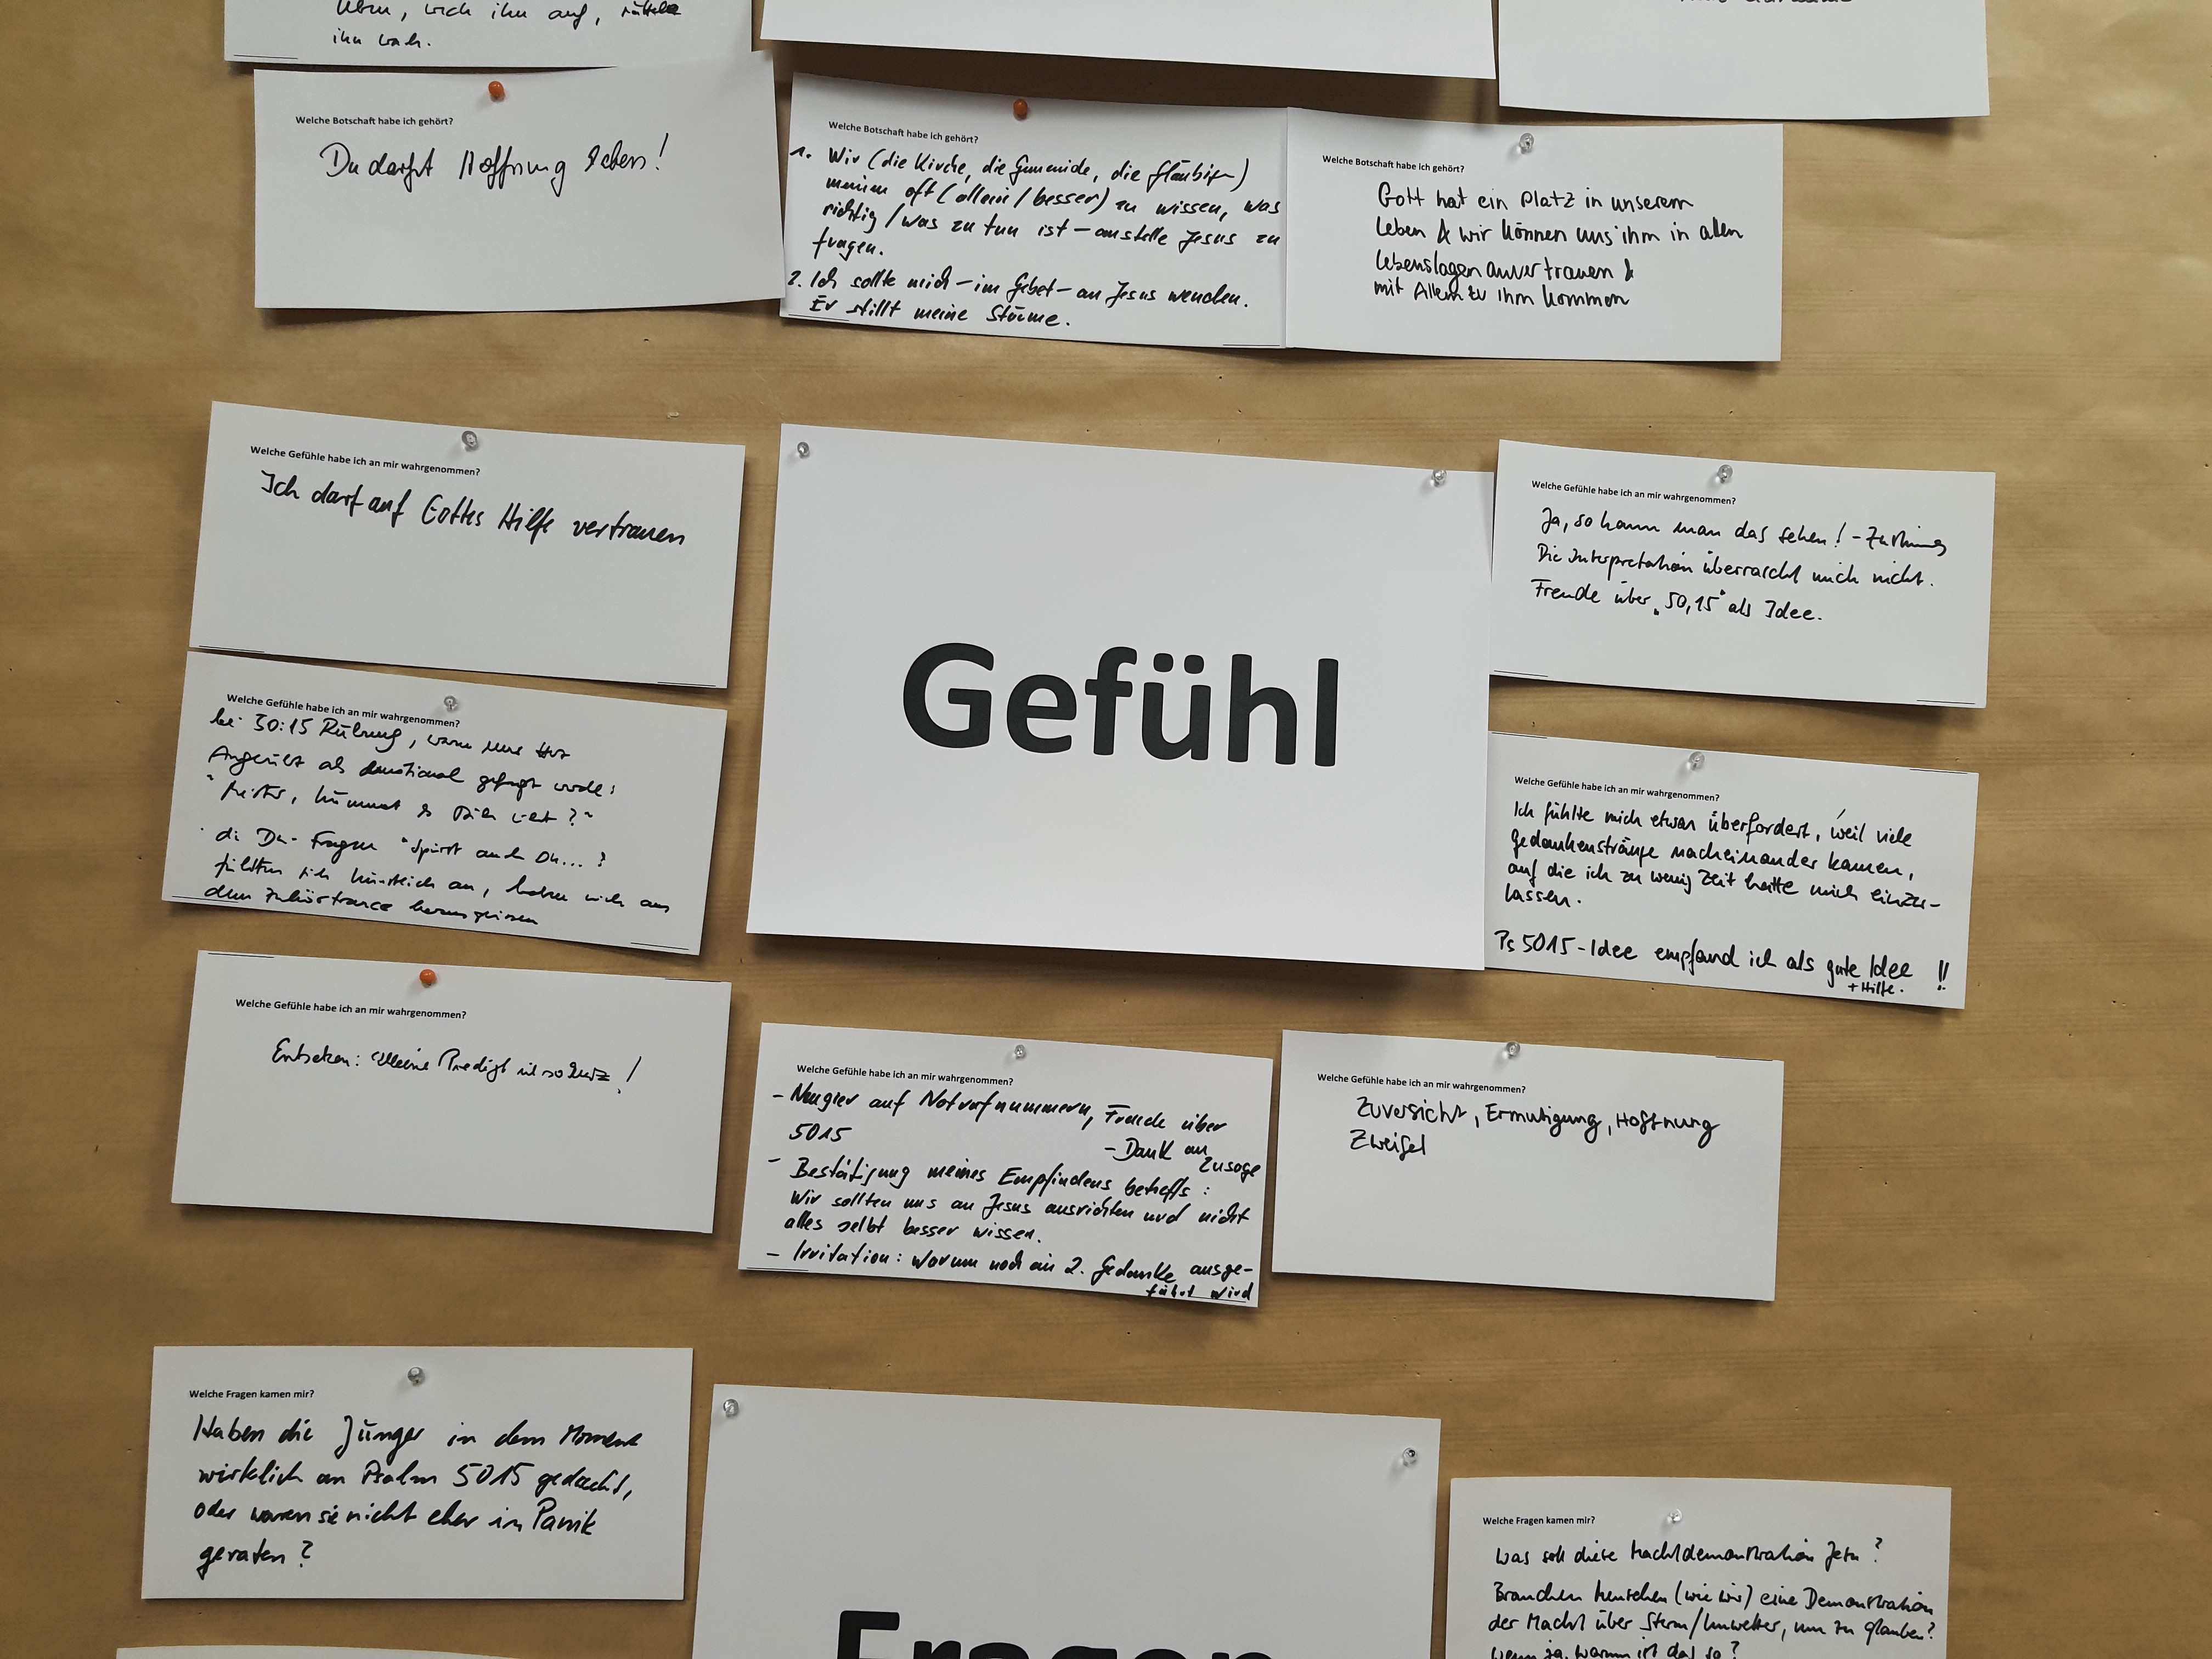 ihn auf,
ihn wach.
Welche Botschaft habe ich gehört?
Du darfst Hoffnung leben!
Welche Botschaft habe ich gehört?
1. Wir (die Kirche, die Gemeinde, die Gläubigen)
meinen oft (allein/besser) zu wissen, was
richtig/was zu tun ist – anstelle Jesus zu
fragen.
2. Ich sollte mich – im Gebet – an Jesus wenden.
Er stillt meine Stürme.
Welche Botschaft habe ich gehört?
Gott hat ein Platz in unserem
Leben & wir können uns ihm in allen
Lebenslagen anvertrauen &
mit Allem zu ihm kommen
Welche Gefühle habe ich an mir wahrgenommen?
Ich darf auf Gottes Hilfe vertrauen
Gefühl
Welche Gefühle habe ich an mir wahrgenommen?
Ja, so kann man das sehen! – Zustimmung
Die Interpretation überrascht mich nicht.
Freude über „50,15“ als Idee.
Welche Gefühle habe ich an mir wahrgenommen?
bei 50:15 Rührung,
als emotional gefragt
die Du-Fragen "spürst auch Du...?
fühlten sich künstlich an, haben mich aus
dem Zuhörtrance herausgerissen
Welche Gefühle habe ich an mir wahrgenommen?
Ich fühlte mich etwas überfordert, weil viele
Gedankenstränge nacheinander kamen,
auf die ich zu wenig Zeit hatte mich einzu-
lassen.
Ps 5015-Idee empfand ich als gute Idee !!
+ Hilfe.
Welche Gefühle habe ich an mir wahrgenommen?
Entsetzen: Predigt so kurz!
Welche Gefühle habe ich an mir wahrgenommen?
– Neugier auf Notrufnummern, Freude über
5015
– Dank an
Zusage
– Bestätigung meines Empfindens betreffs:
Wir sollten uns an Jesus ausrichten und nicht
alles selbt besser wissen.
– Irritation: warum noch ein 2. Gedanke ausge-
führt wird
Welche Gefühle habe ich an mir wahrgenommen?
Zuversicht, Ermutigung, Hoffnung
Zweifel
Welche Fragen kamen mir?
Haben die Jünger in dem Moment
wirklich an Psalm 5015 gedacht,
oder waren sie nicht eher in Panik
geraten?
Fragen
Welche Fragen kamen mir?
Was soll diese Machtdemonstration Jesu?
Brauchen Menschen (wie wir) eine Demonstration
der Macht über Sturm/Unwetter, um zu glauben?
Wenn ja, warum ist das so?